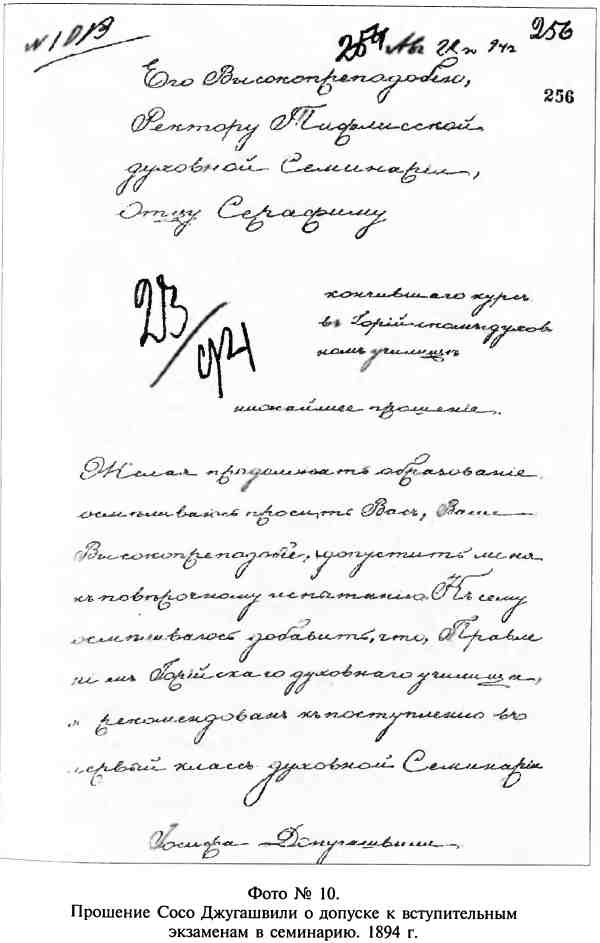 № 1013
254 Авг 22 дн 94 г 256
256
Его Высокопреподобію,
Ректору Тифлисской
духовной Семинаріи,
Отцу Серафиму
23/94
кончившаго курсъ
въ Горійскомъ духов
номъ училищѣ
нижайшее прошеніе.
Желая продолжать образованіе
осмѣливаюсь просить Васъ, Ваше
Высокопреподобіе, допустить меня
къ повѣрочному испытанію. Къ сему
осмѣливаюсь добавить, что, Правле
ніемъ Горійскаго духовнаго училища,
я рекомендованъ къ поступленію въ
первый классъ духовной Семинаріи
Іосифа Джугашвили.
Фото № 10.
Прошение Сосо Джугашвили о допуске к вступительным
экзаменам в семинарию. 1894 г.